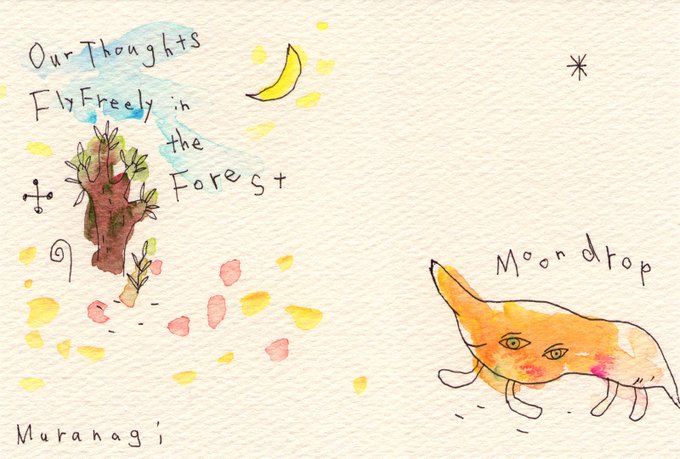 Our Thoughts
Fly Freely in
the
Forest
Moondrop
Muranagi